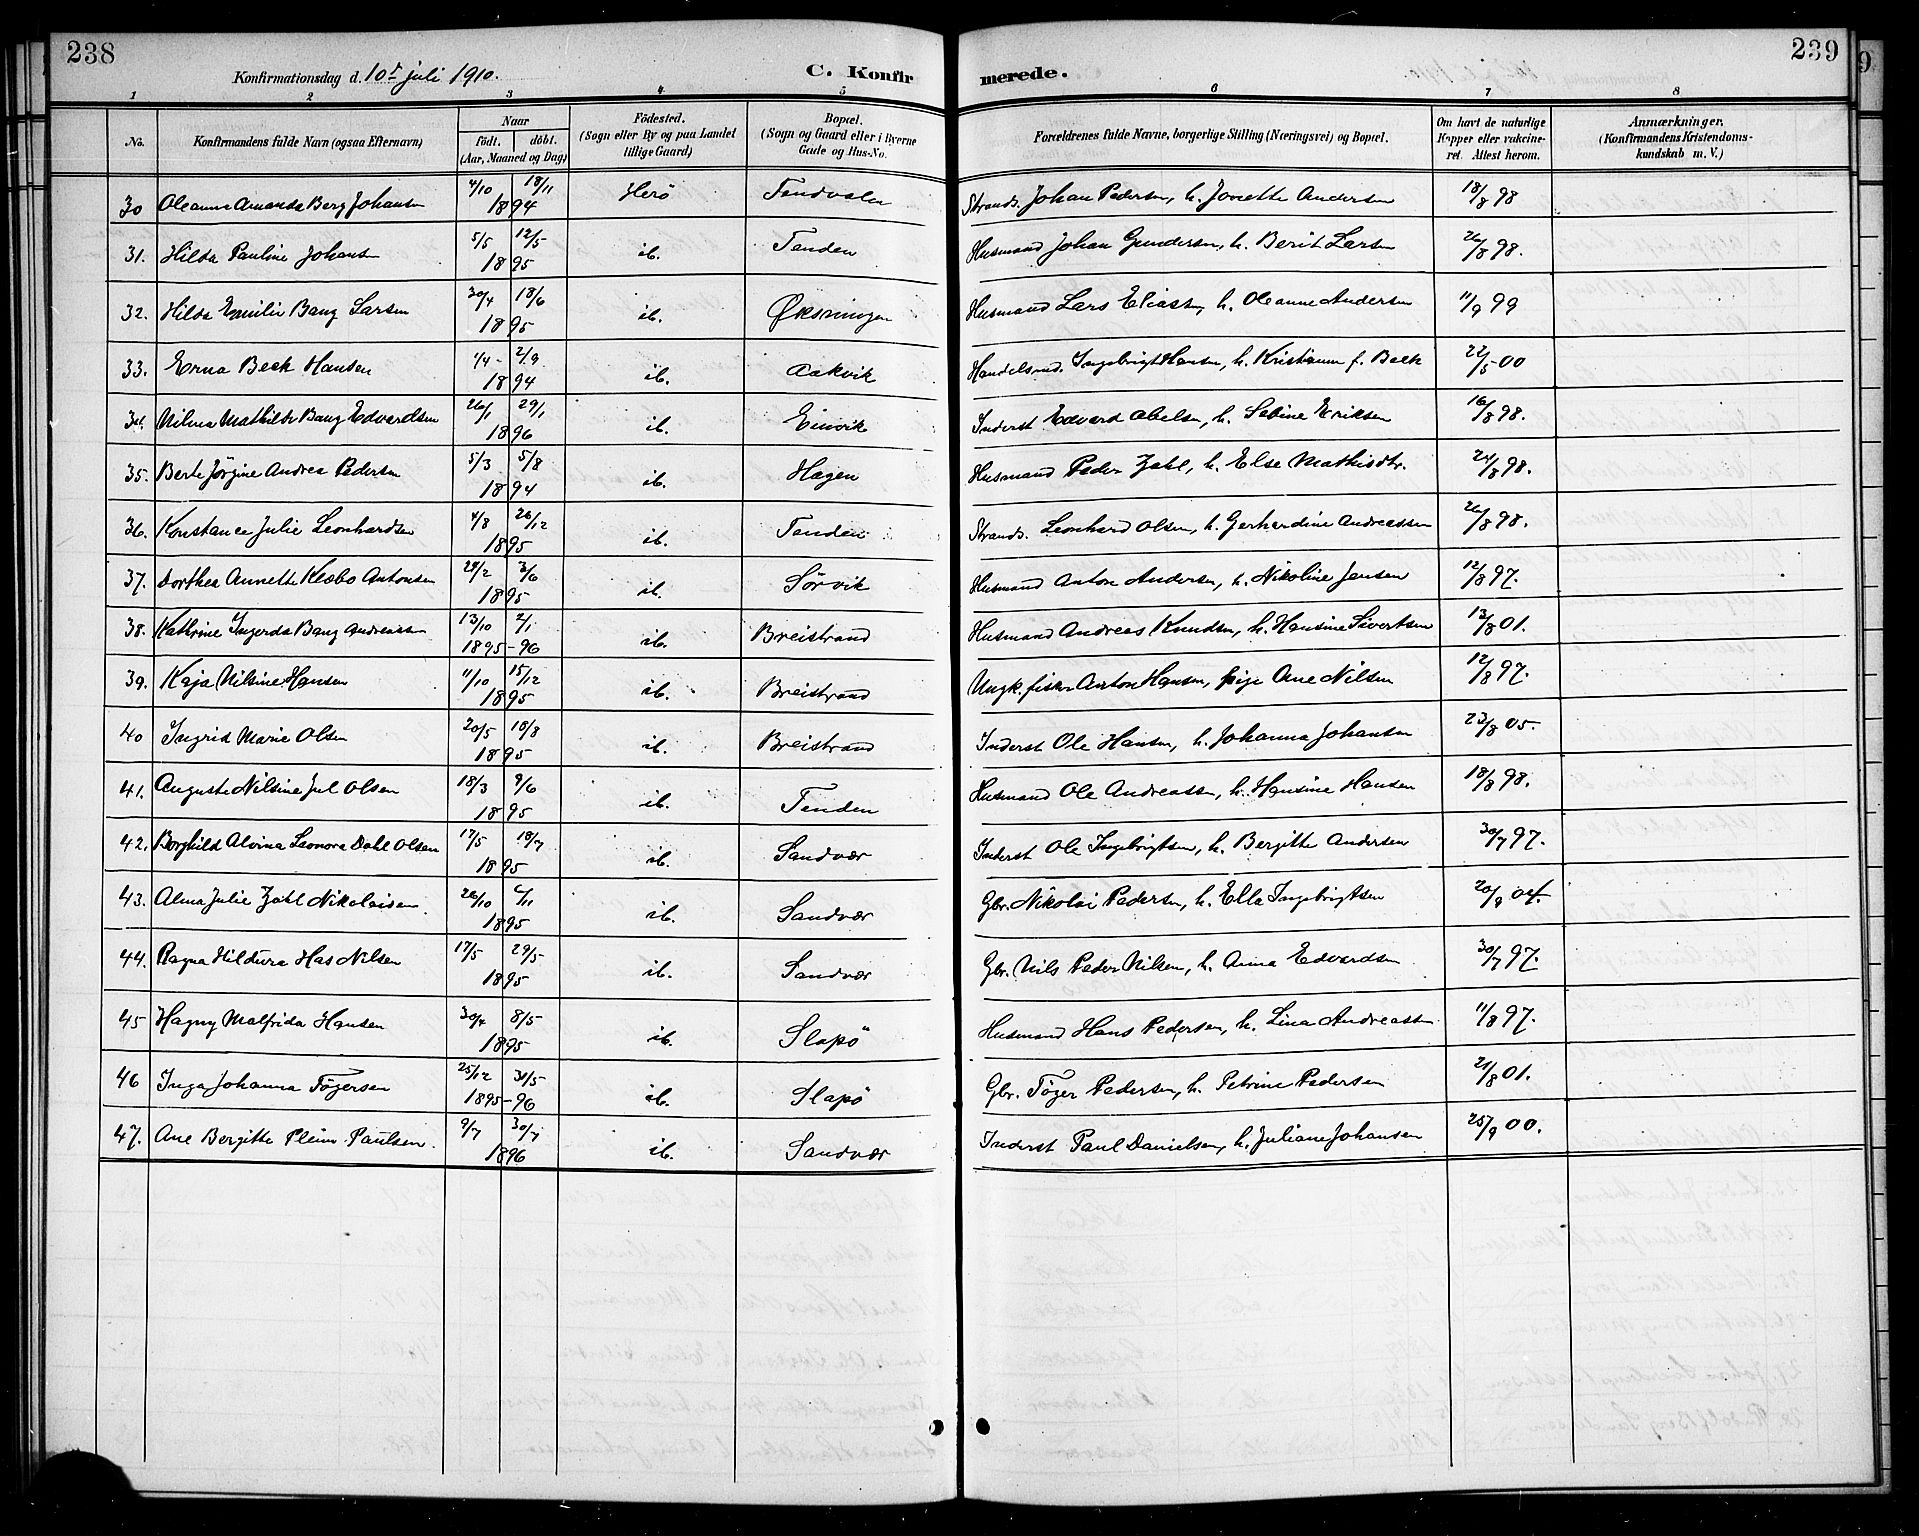 238
239
Konfirmationsdag d. 10de juli 1910.
C. Konfirmerede.
1 2 3 4 5 6 7 8
No. Konfirmandens fulde Navn (ogsaa Efternavn) Naar födt. döbt. (Aar, Maaned og Dag) Födested. (Sogn eller By og paa Landet tillige Gaard) Bopæl. (Sogn og Gaard eller i Byerne Gade og Hus-No. Forældrenes fulde Navne, borgerlige Stilling (Næringsvei) og Bopæl. Om havt de naturlige Kopper eller vakcineret. Attest herom. Anmærkninger. (Konfirmandens Kristendomskundskab m. V.)
30 Oleanna Amanda Berg Johansen 4/10 18/11 1894 Herö Tendvalen Strands. Johan Pedersen, h. Jonette Andersen 18/8 98
31. Hilda Pauline Johansen 5/5 12/5 1895 ib. Tenden Husmand Johan Gundersen, h. Berit Larsen 26/8 98.
32. Hilda Emilie Bang Larsen 30/4 18/6 1895 ib. Øksningen Husmand Lars Eliassen, h. Oleanne Andersen 11/9 99
33. Erna Beck Hansen 1/4 - 2/9 1894 ib. Aakvik Handelsmd. Ingebrigt Hansen, h. Kristianna f. Beck 22/5 00
34. Wilma Mathilde Bang Edvardsen 26/1 29/1 1896 ib. Einvik Inderst Edvard Abelsen, h. Sebine Eriksen 16/8 98.
35. Berte Jörgine Andrea Pedersen 5/3 5/8 1894 ib. Hagen Husmand Peder Zahl, h. Else Mathisdtr. 24/8 98.
36. Konstance Julie Leonhardsen 4/8 26/12 1895 ib. Tenden Strands. Leonhard Olsen, h. Gerhardine Andreassen 26/8 98.
37. Dorthea Annette Klæbo Antonsen 24/2 3/6 1895 ib. Sørvik Husmand Anton Andersen, h. Nikoline Jensen 12/8 97.
38. Kathrine Ingerda Bang Andreassen 13/10 2/1 1895-96 ib. Breistrand Husmand Andreas Knudsen, h. Hansine Sivertsen 13/8 01.
39. Kaja Nilsine Hansen 11/10 15/12 1895 ib. Breistrand Ungk. fisker Anton Hansen, pige Ane Nilsen 12/8 97.
40 Ingrid Marie Olsen 20/5 18/8 1895 ib. Breistrand Inderst Ole Hansen, h. Johanna Johansen 23/8 05.
41. Auguste Nilsine Jul Olsen 18/3 9/6 1895 ib. Tenden Husmand Ole Andreassen, h. Hansine Hansen 18/8 98.
42. Borghild Alvina Leonora Dahl Olsen 17/5 18/7 1895 ib. Sandvær Inderst Ole Ingebrigtsen, h. Bergitte Andersen 30/7 97.
43. Alma Julie Zahl Nikolaisen 26/10 6/11 1895 ib. Sandvær Gbr. Nikolai Pedersen, h. Ella Ingebrigtsen 20/9 04.
44. Ragna Hildura Has Nilsen 17/5 29/5 1895 ib. Sandvær Gbr. Nils Peder Nilsen, h. Anna Edvardsen 30/7 97.
45 Hagny Malfrida Hansen 30/4 8/5 1895 ib. Slapö Husmand Hans Pedersen, h. Lina Andreassen 11/8 97.
46 Inga Johanna Tøgersen 25/12 31/5 1895-96 ib. Slapö Gbr. Tøger Pedersen, h. Petrine Pedersen 21/8 01.
47. Ane Bergitte Pleim Paulsen 9/7 30/7 1896 ib. Sandvær Inderst Paul Danielsen, h. Juliane Johansen 25/9 00.